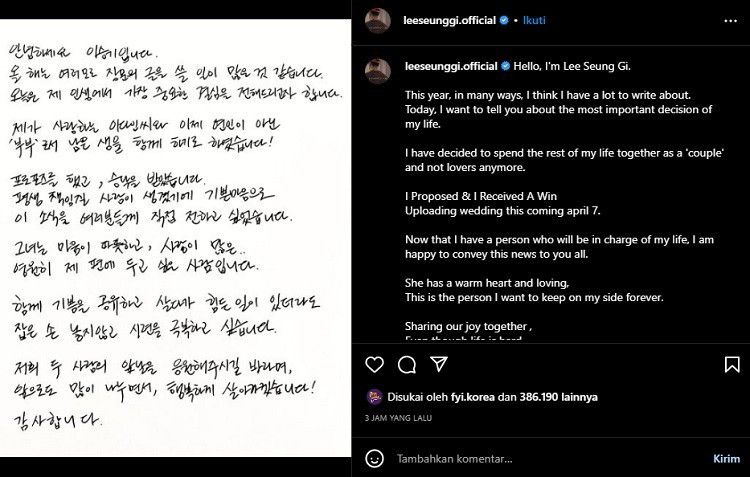 안녕하세요 이승기입니다.
올 해는 여러모로 장문의 글을 쓸 일이 많은 것 같습니다.
오늘은 제 인생에서 가장 중요한 결심을 전해드리고자 합니다.
제가 사랑하는 이다인씨와 이제 연인이 아닌
'부부'로서 남은 생을 함께 하기로 하였습니다!
프로포즈를 했고, 승낙을 받았습니다.
평생 책임질 사람이 생겼기에 기쁜마음으로
이 소식을 여러분들께 직접 전하고 싶었습니다.
그녀는 마음이 따뜻하고, 사랑이 많은..
영원히 제 편에 두고 싶은 사람입니다.
함께 기쁨을 공유하고 살다가 힘든 일이 있더라도
잡은 손 놓지않고 시련을 극복하고 싶습니다.
저희 두 사람의 앞날을 응원해주시길 바라며,
앞으로도 많이 나누면서, 행복하게 살아가겠습니다!
감사합니다.
leeseunggi.official • Ikuti
leeseunggi.official Hello, I'm Lee Seung Gi.
This year, in many ways, I think I have a lot to write about.
Today, I want to tell you about the most important decision of
my life.
I have decided to spend the rest of my life together as a 'couple'
and not lovers anymore.
I Proposed & I Received A Win
Uploading wedding this coming april 7.
Now that I have a person who will be in charge of my life, I am
happy to convey this news to you all.
She has a warm heart and loving,
This is the person I want to keep on my side forever.
Sharing our joy together ,
Even though life is hard
Disukai oleh fyi.korea dan 386.190 lainnya
3 JAM YANG LALU
Tambahkan komentar...
Kirim